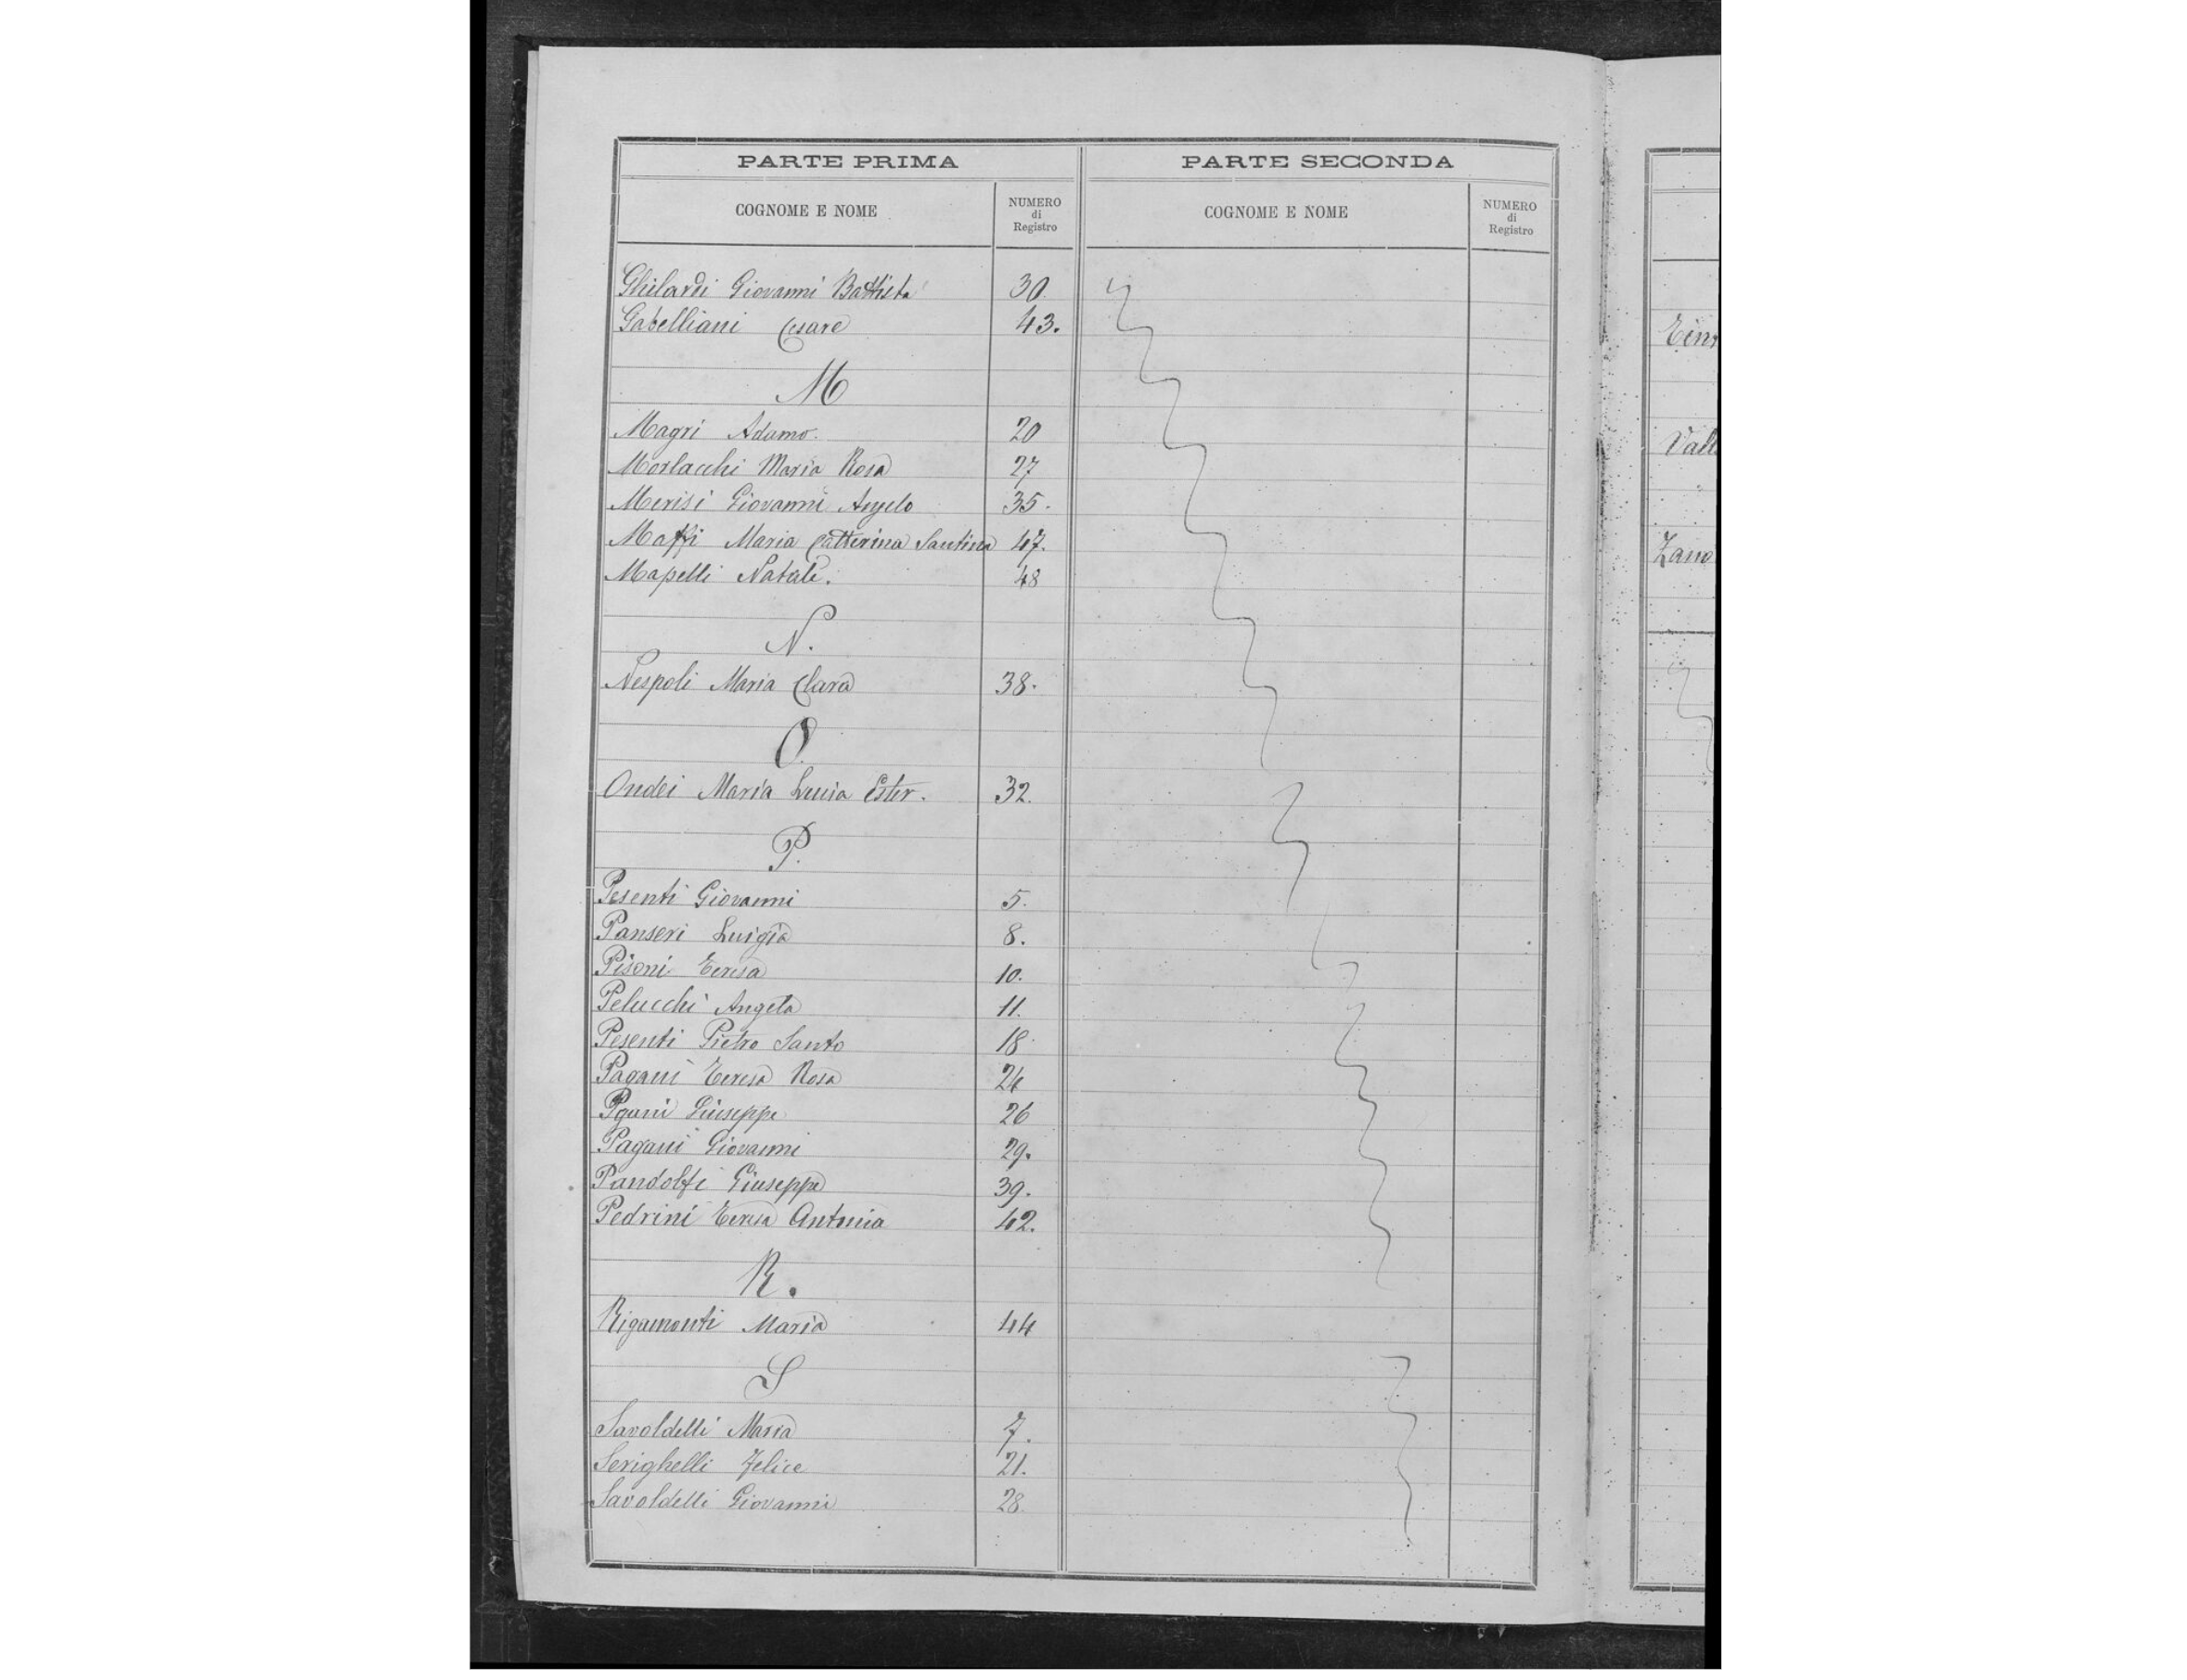 PARTE PRIMA PARTE SECONDA
COGNOME E NOME NUMERO di Registro COGNOME E NOME NUMERO di Registro
Ghilardi Giovanni Battista 30
Gabelliani Cesare 43.
M
Magri Adamo. 20
Morlacchi Maria Rosa 27
Merisi Giovanni Angelo 35.
Maffi Maria Catterina Santina 47.
Mapelli Natale. 48
N.
Nespoli Maria Clara 38.
O.
Ondei Maria Lucia Ester. 32.
P.
Pesenti Giovanni 5.
Panseri Luigia 8.
Pisoni Teresa 10.
Pelucchi Angela 11.
Pesenti Pietro Santo 18
Pagani Teresa Rosa 24
Pgani Giuseppe 26
Pagani Giovanni 29.
Pandolfi Giuseppe 39.
Pedrini Teresa Antonia 42.
R.
Rigamonti Maria 44
S
Savoldelli Maria 7.
Serighelli Felice 21.
Savoldelli Giovanni 28.